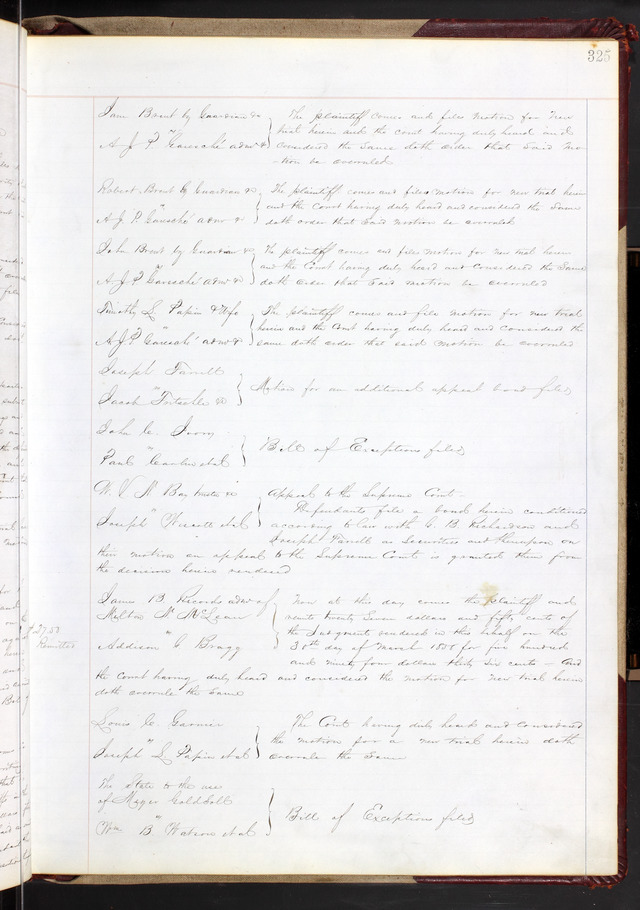 325
Jane Brent by Guardian &c The plaintiff comes and files motion for New
vs trial herein and the court having duly heard and
A J P Garesché admr & considered the Same doth order that Said mo-
-tion be overruled
Robert Brent by Guardian &c The plaintiff comes and files motion for New trial herein
vs and the Court having duly heard and considered the Same
A J P. Garesché admr & doth order that Said motion be overruled
John Brent by Guardian &c The plaintiff comes and files motion for New trial herein
vs and the Court having duly heard and considered the Same
A J P Garesché admr & doth order that Said motion be overruled
Timothy L Papin & Wife The plaintiff comes and files motion for new trial
vs herein and the Court having duly heard and considered the
A J P. Garesché admr & same doth order that said motion be overruled
Joseph Farrell
vs Motion for an additional appeal bond filed
Jacob &c
John C.
vs Bill of Exceptions filed
Paul et al
W. V N Bay &c Appeal to the Supreme Court-
vs Defendants file a bond herein conditioned
Joseph et al according to law with C B Richardson and
Joseph Farrell as Securities and thereupon on
their motion an appeal to the Supreme Court is granted them from
the decisions herein rendered
James B. Records admr of Now at this day comes the plaintiff and
Melton N McLean remits twenty Seven dollars and fifty cents of
$27.50 vs the Judgment rendered in this behalf on the
Remitted Addison G Bragg 30th day of March 1858 for five hundred
and ninety four dollars thirty Six cents - And
the Court having duly heard and considered the motion for new trial herein
doth overrule the Same
Louis C. Garnier The Court having duly heard and considered
vs the motion for a new trial herein doth
Joseph L Papin et al overrule the Same
The State to the use
of Mayer Goldsoll
vs Bill of Exceptions filed
Wm B Watson et al